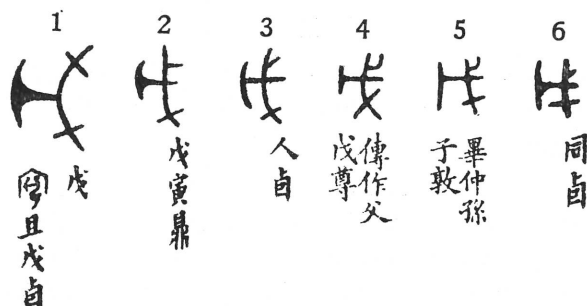 1 2 3 4 5 6
戊
且戊卣
戊寅鼎
人卣
傳作父
戊尊
畢仲孫
子敦
同卣